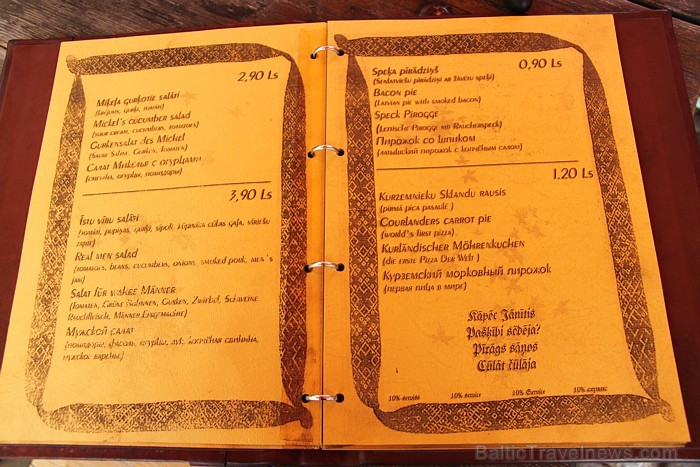 2,90 Ls
Miķeļa gurķotie salāti
(krējums, gurķi, tomāti)
Mickel's cucumber salad
(sour cream, cucumbers, tomatoes)
Gurkensalat des Michel
(Saure Sahne, Gurken, Tomaten)
Салат Микелья с огурцами
(сметана, огурцы, помидоры)
3,90 Ls
Īstu vīru salāti
(tomāti, pupiņas, gurķi, sīpoli, kūpināta cūkas gaļa, vīriešu
zapte)
Real men salad
(tomatoes, beans, cucumbers, onions, smoked pork, men's
jam)
Salat für wahre Männer
(Tomaten, Grüne Bohnen, Gurken, Zwiebel, Schweine
Rauchfleisch, Männer Eingemachte)
Мужской салат
(помидоры, фасоль, огурцы, лук, копчёная свинина,
мужское варенье)
0,90 Ls
Speķa pīrādziņš
(Senlatviešu pīrādziņi ar žāvētu speķi)
Bacon pie
(Latvian pie with smoked bacon)
Speck Pirogge
(Lettische Pirogge mit Räucherspeck)
Пирожок со шпиком
(латышский пирожок с копчёным салом)
1.20 Ls
Kurzemnieku Sklandu rausis
(pirmā pica pasaulē )
Courlanders carrot pie
(world's first pizza)
Kurländischer Möhrenkuchen
(die erste Pizza Der Welt )
Курземский морковный пирожок
(первая пица в мире)
Kāpēc Jānītis
Pašķībi sēdēja?
Pīrāgs sānos
Čūlāt čūlāja
10% serviss 10% service 10% Service 10% сервис
BalticTravelnews.com